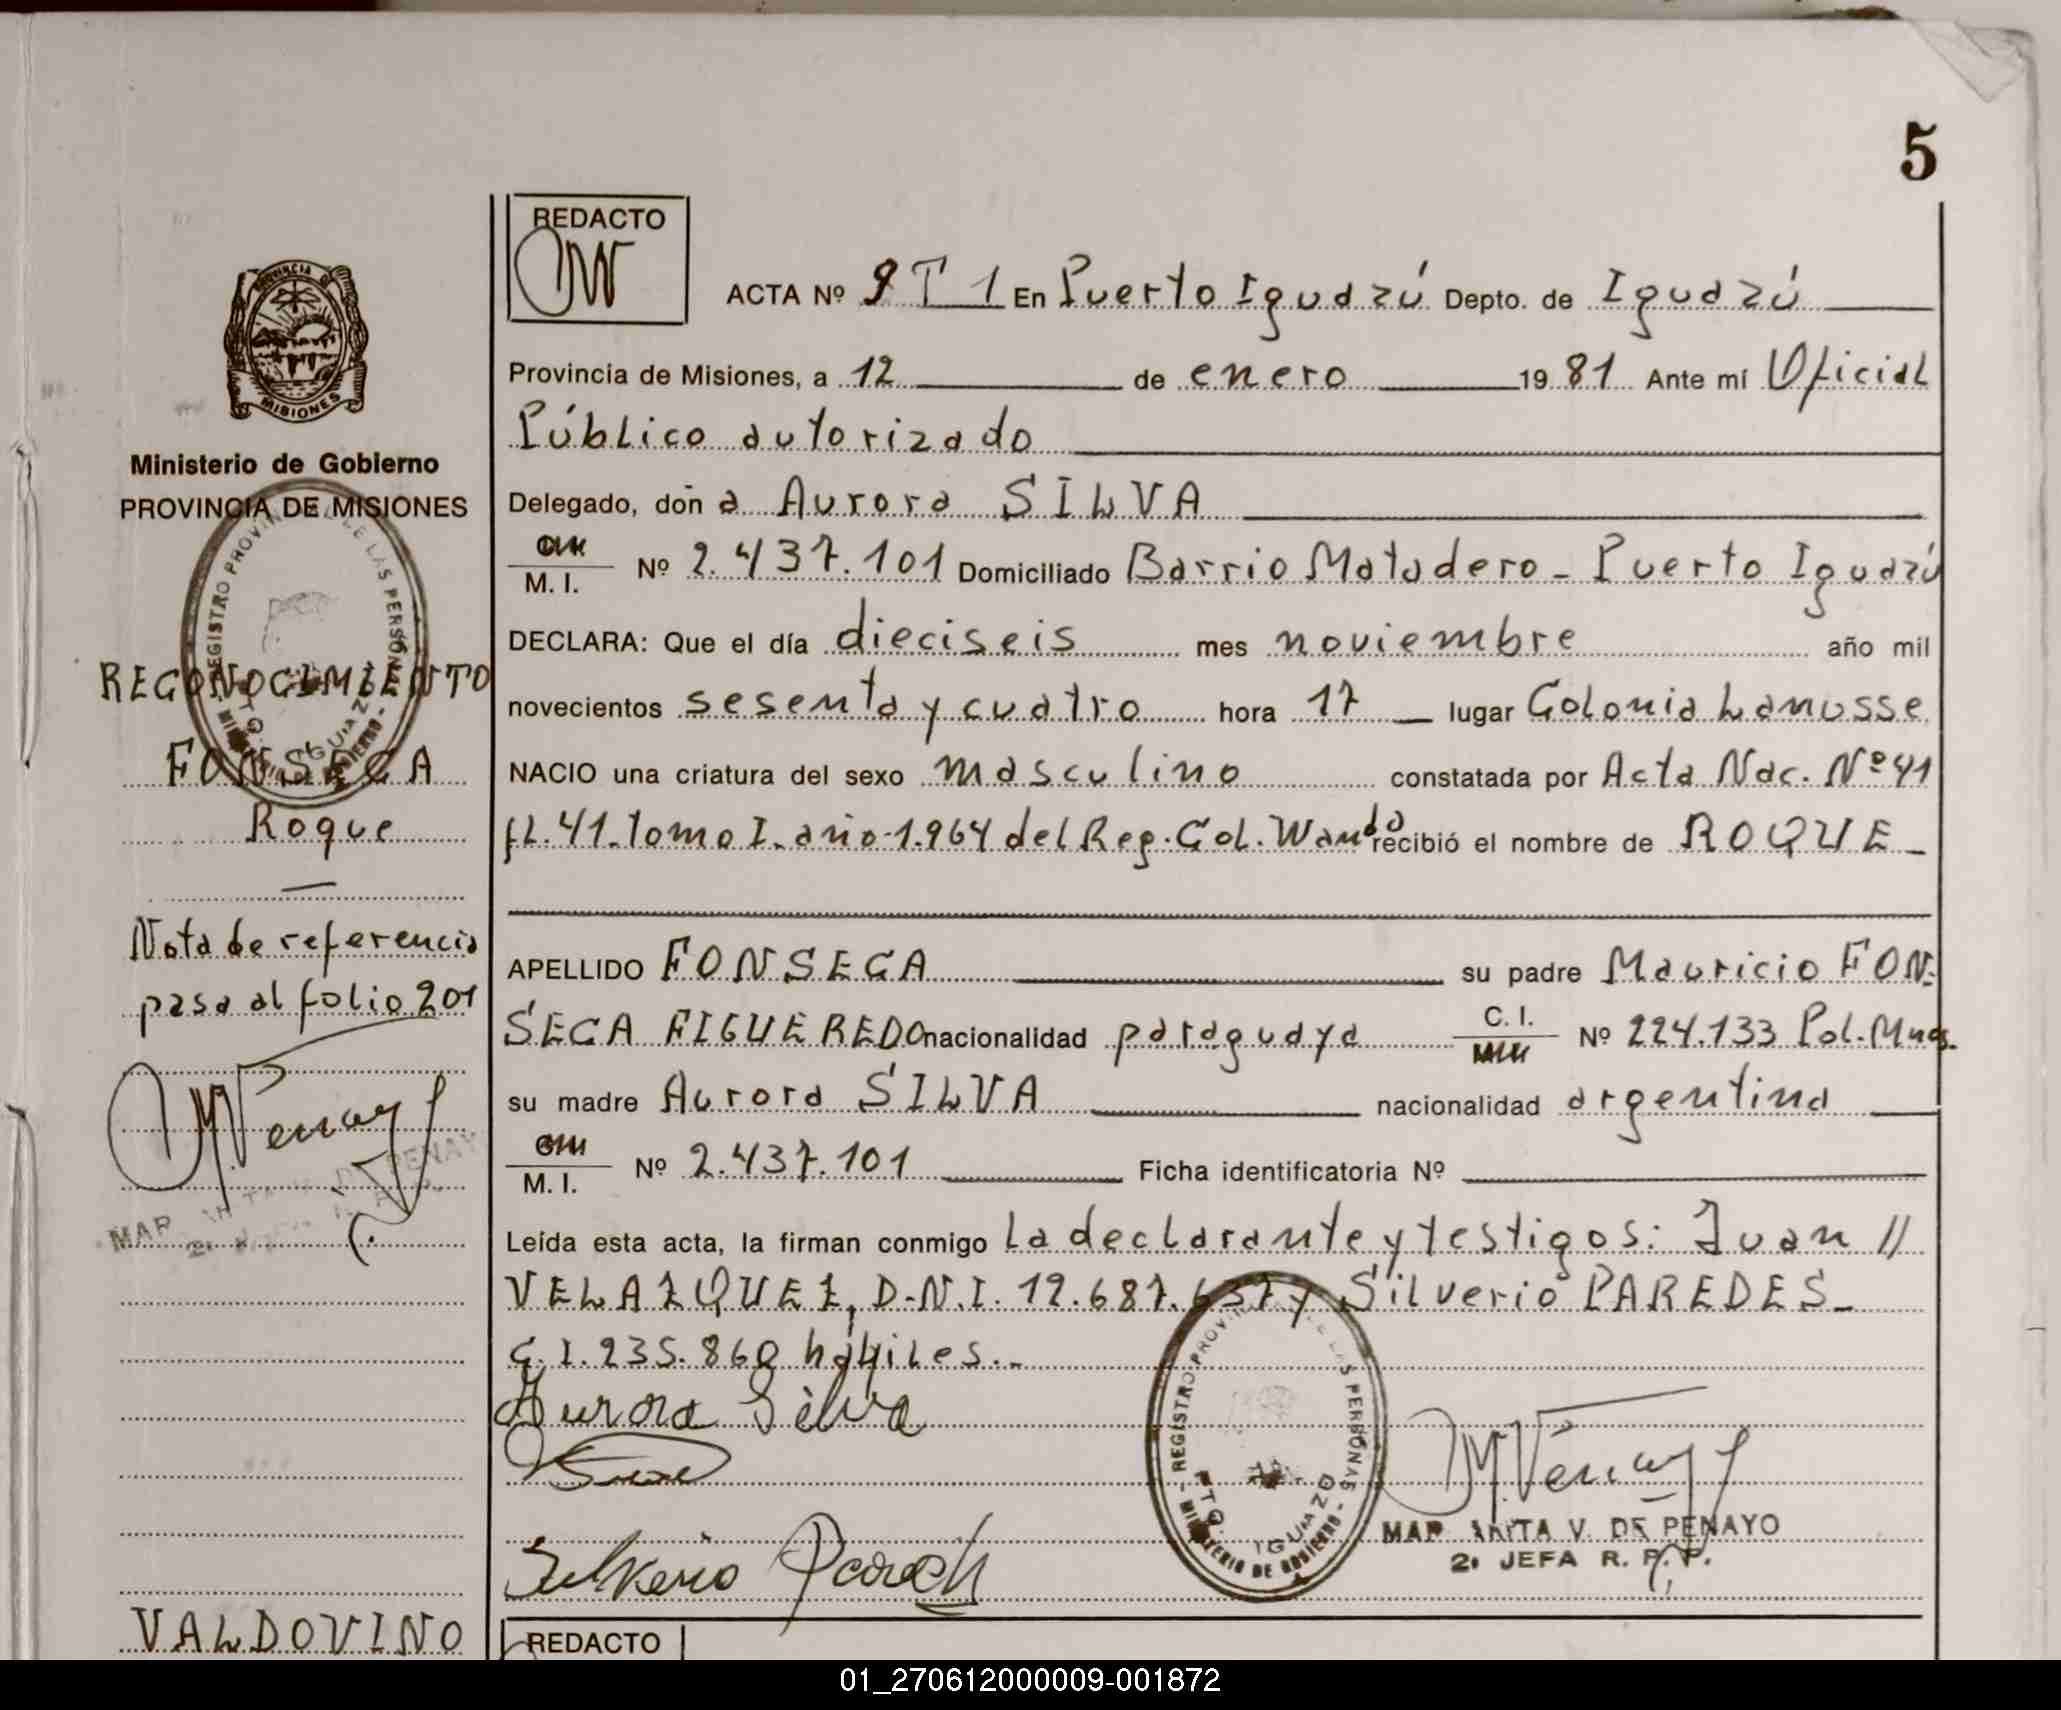 5
REDACTO
ACTA Nº 9 T 1 En Puerto Iguazú Depto. de Iguazú
Provincia de Misiones, a 12 de enero 19 81 Ante mí Oficial
Público autorizado
Ministerio de Gobierno
PROVINCIA DE MISIONES
Delegado, don a Aurora SILVA
M. I. Nº 2.437.101 Domiciliado Barrio Matadero - Puerto Iguazú
DECLARA: Que el día dieciseis mes noviembre año mil
novecientos sesenta y cuatro hora 17 lugar Colonia Lanusse
NACIO una criatura del sexo masculino constatada por Acta Nac. Nº 41
fl. 41. Tomo I. año-1.964 del Reg. Col. Wanda recibió el nombre de ROQUE
RECONOCIMIENTO
FONSECA
Roque
Nota de referencia
pasa al folio 201
APELLIDO FONSECA su padre Mauricio FON-
SECA FIGUEREDO nacionalidad paraguaya C. I. Nº 224.133 Pol. Mnes.
su madre Aurora SILVA nacionalidad argentina
M. I. Nº 2.437.101 Ficha identificatoria Nº
Leída esta acta, la firman conmigo la declarante y testigos: Juan //
VELAZQUEZ, D.N.I. 12.687.637 y Silverio PAREDES-
C.I. 235.860 hábiles.-
Aurora Silva
Silverio Paredes
REGISTRO PROVINCIAL DE LAS PERSONAS
PTO. IGUAZO
MINISTERIO DE GOBIERNO
V. DE PENAYO
2ª JEFA R. P. P.
VALDOVINO
REDACTO
01_270612000009-001872